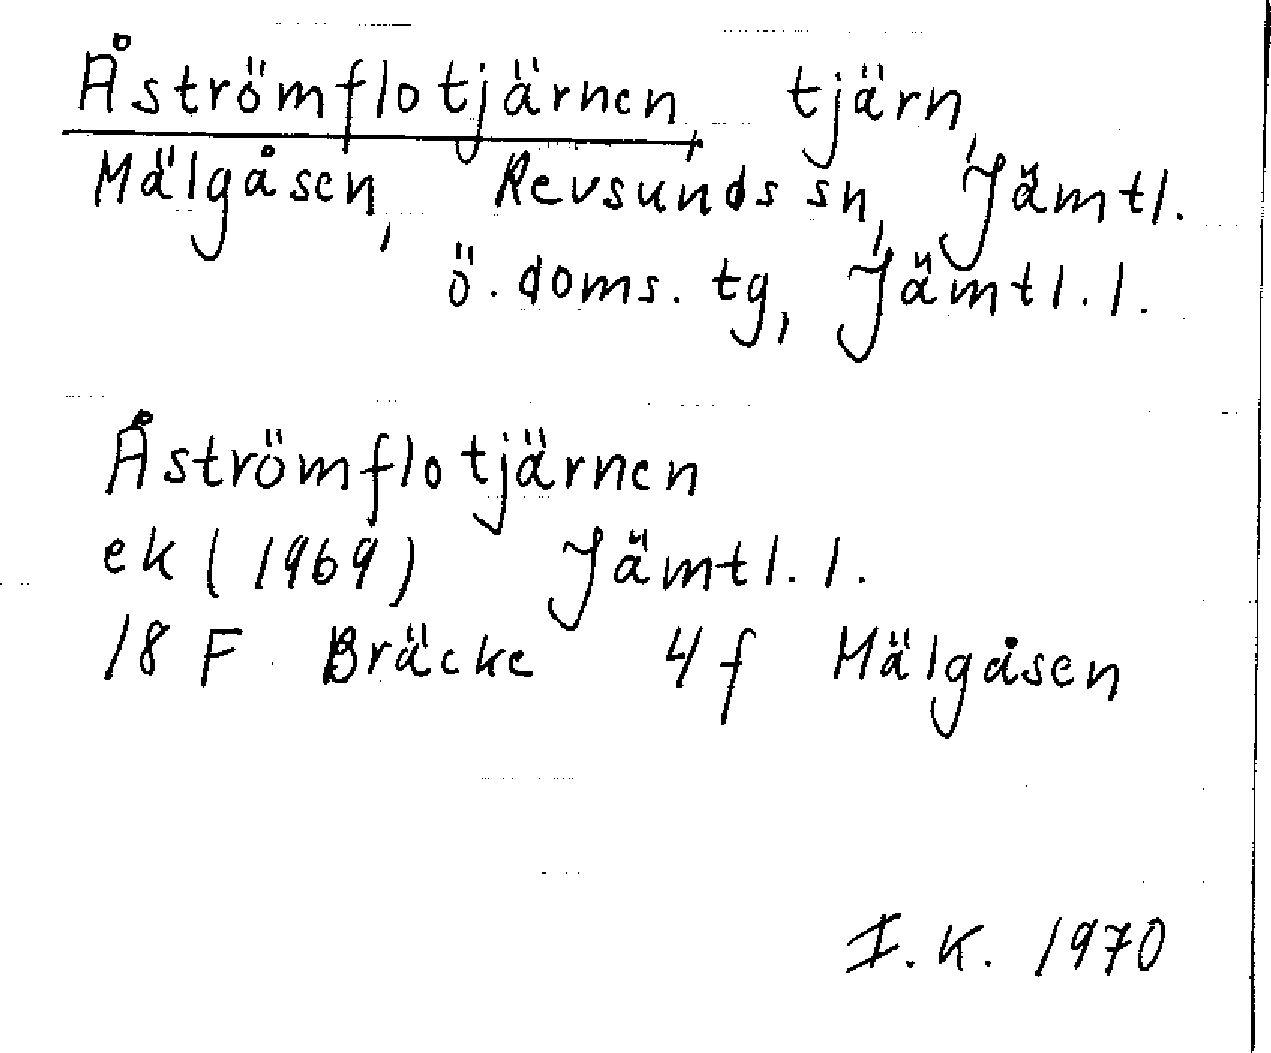 Åströmflotjärnen, tjärn,
Mälgåsen, Revsunds sn, Jämtl.
ö. doms. tg, Jämtl. l.
Åströmflotjärnen
ek (1969) Jämtl. l.
18 F Bräcke 4 f Mälgåsen
I. K. 1970